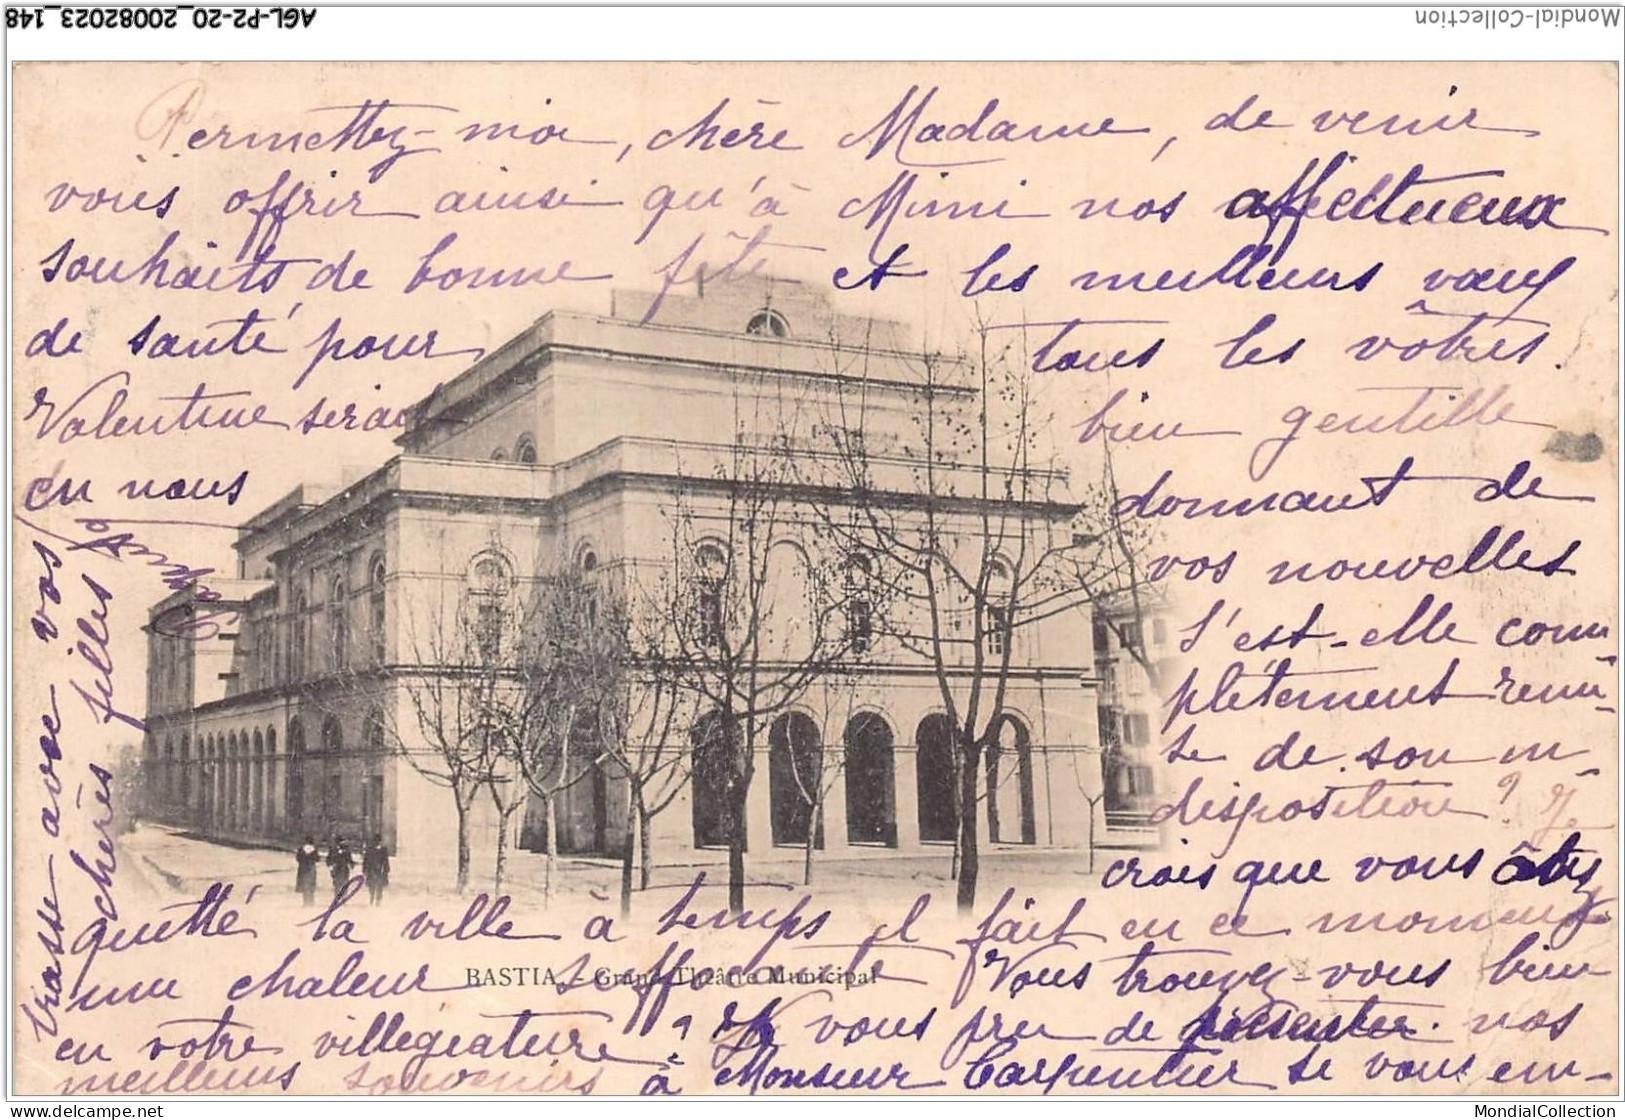 AGL-P2-20_20082023_148
Mondial-Collection
Permettez-moi, chère Madame, de venir
vous offrir ainsi qu'à Mimi nos affectueux
souhaits de bonne fête et les meilleurs vœux
de santé pour tous les vôtres.
Valentine serait bien gentille
en nous donnant de
vos nouvelles
S'est-elle com-
plétement remi-
se de son in-
disposition? Je
crois que vous êtes
quitté la ville à temps il fait en ce moment
une chaleur suffocante Vous trouvez-vous bien
en votre villégiature? Je vous prie de présenter nos
meilleurs souvenirs à Monsieur Carpentier Je vous em-
brasse avec vos
chères filles
BASTIA. - Grand Théâtre Municipal
MondialCollection